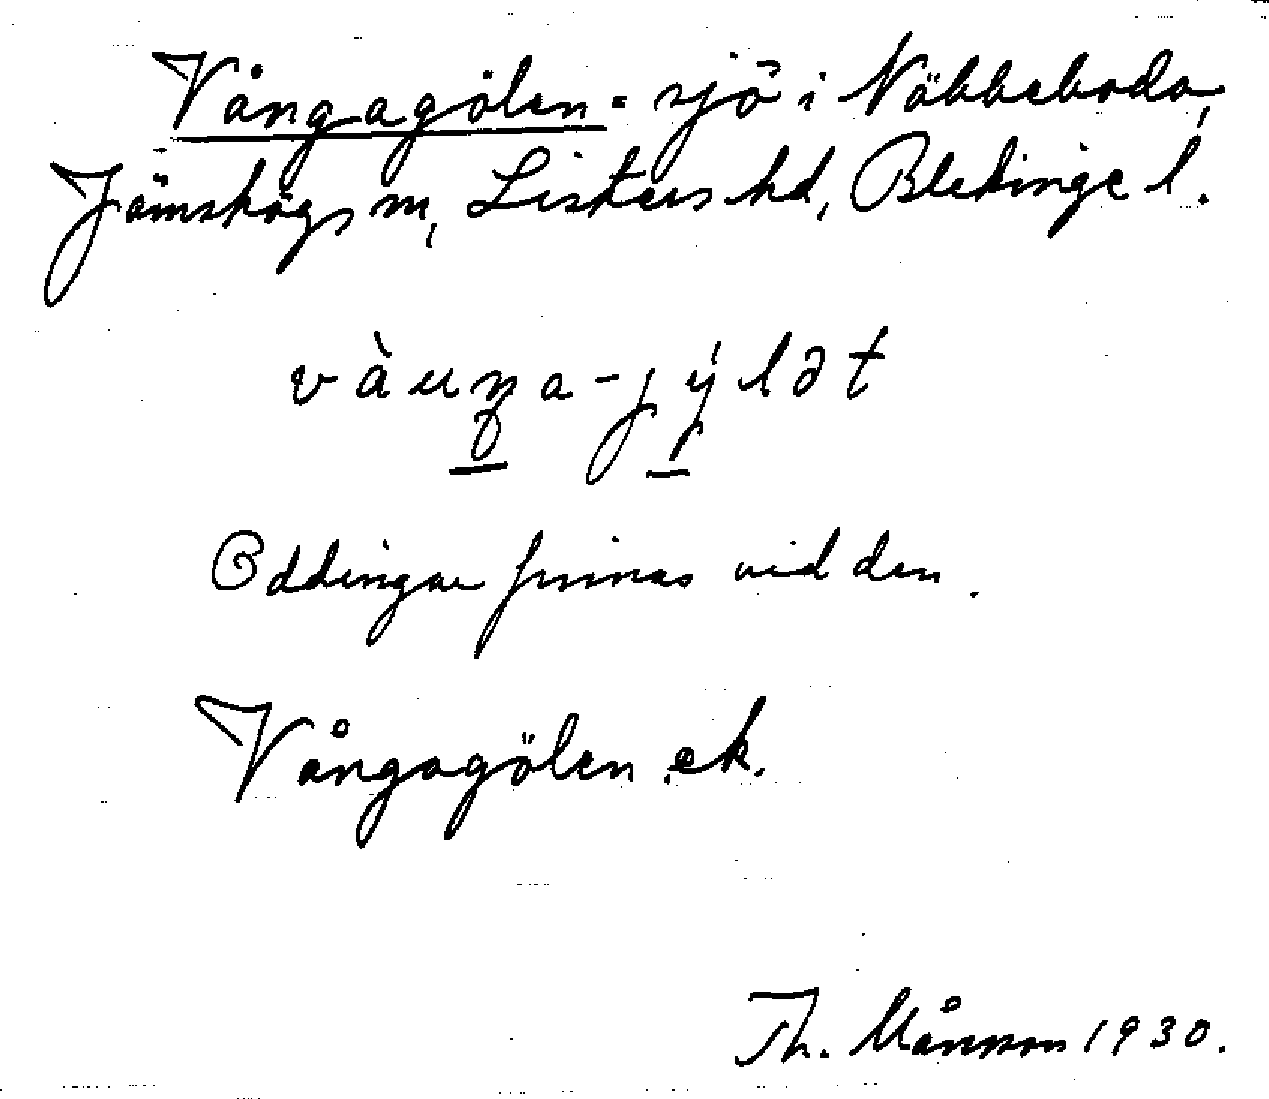 Vångagölen = sjö i Näbbeboda,
Jämshögs sn, Listers hd, Blekinge l.
vàuŋa-jýlət
Oddingar finnas vid den.
Vångagölen ek.
Th. Månsson 1930.